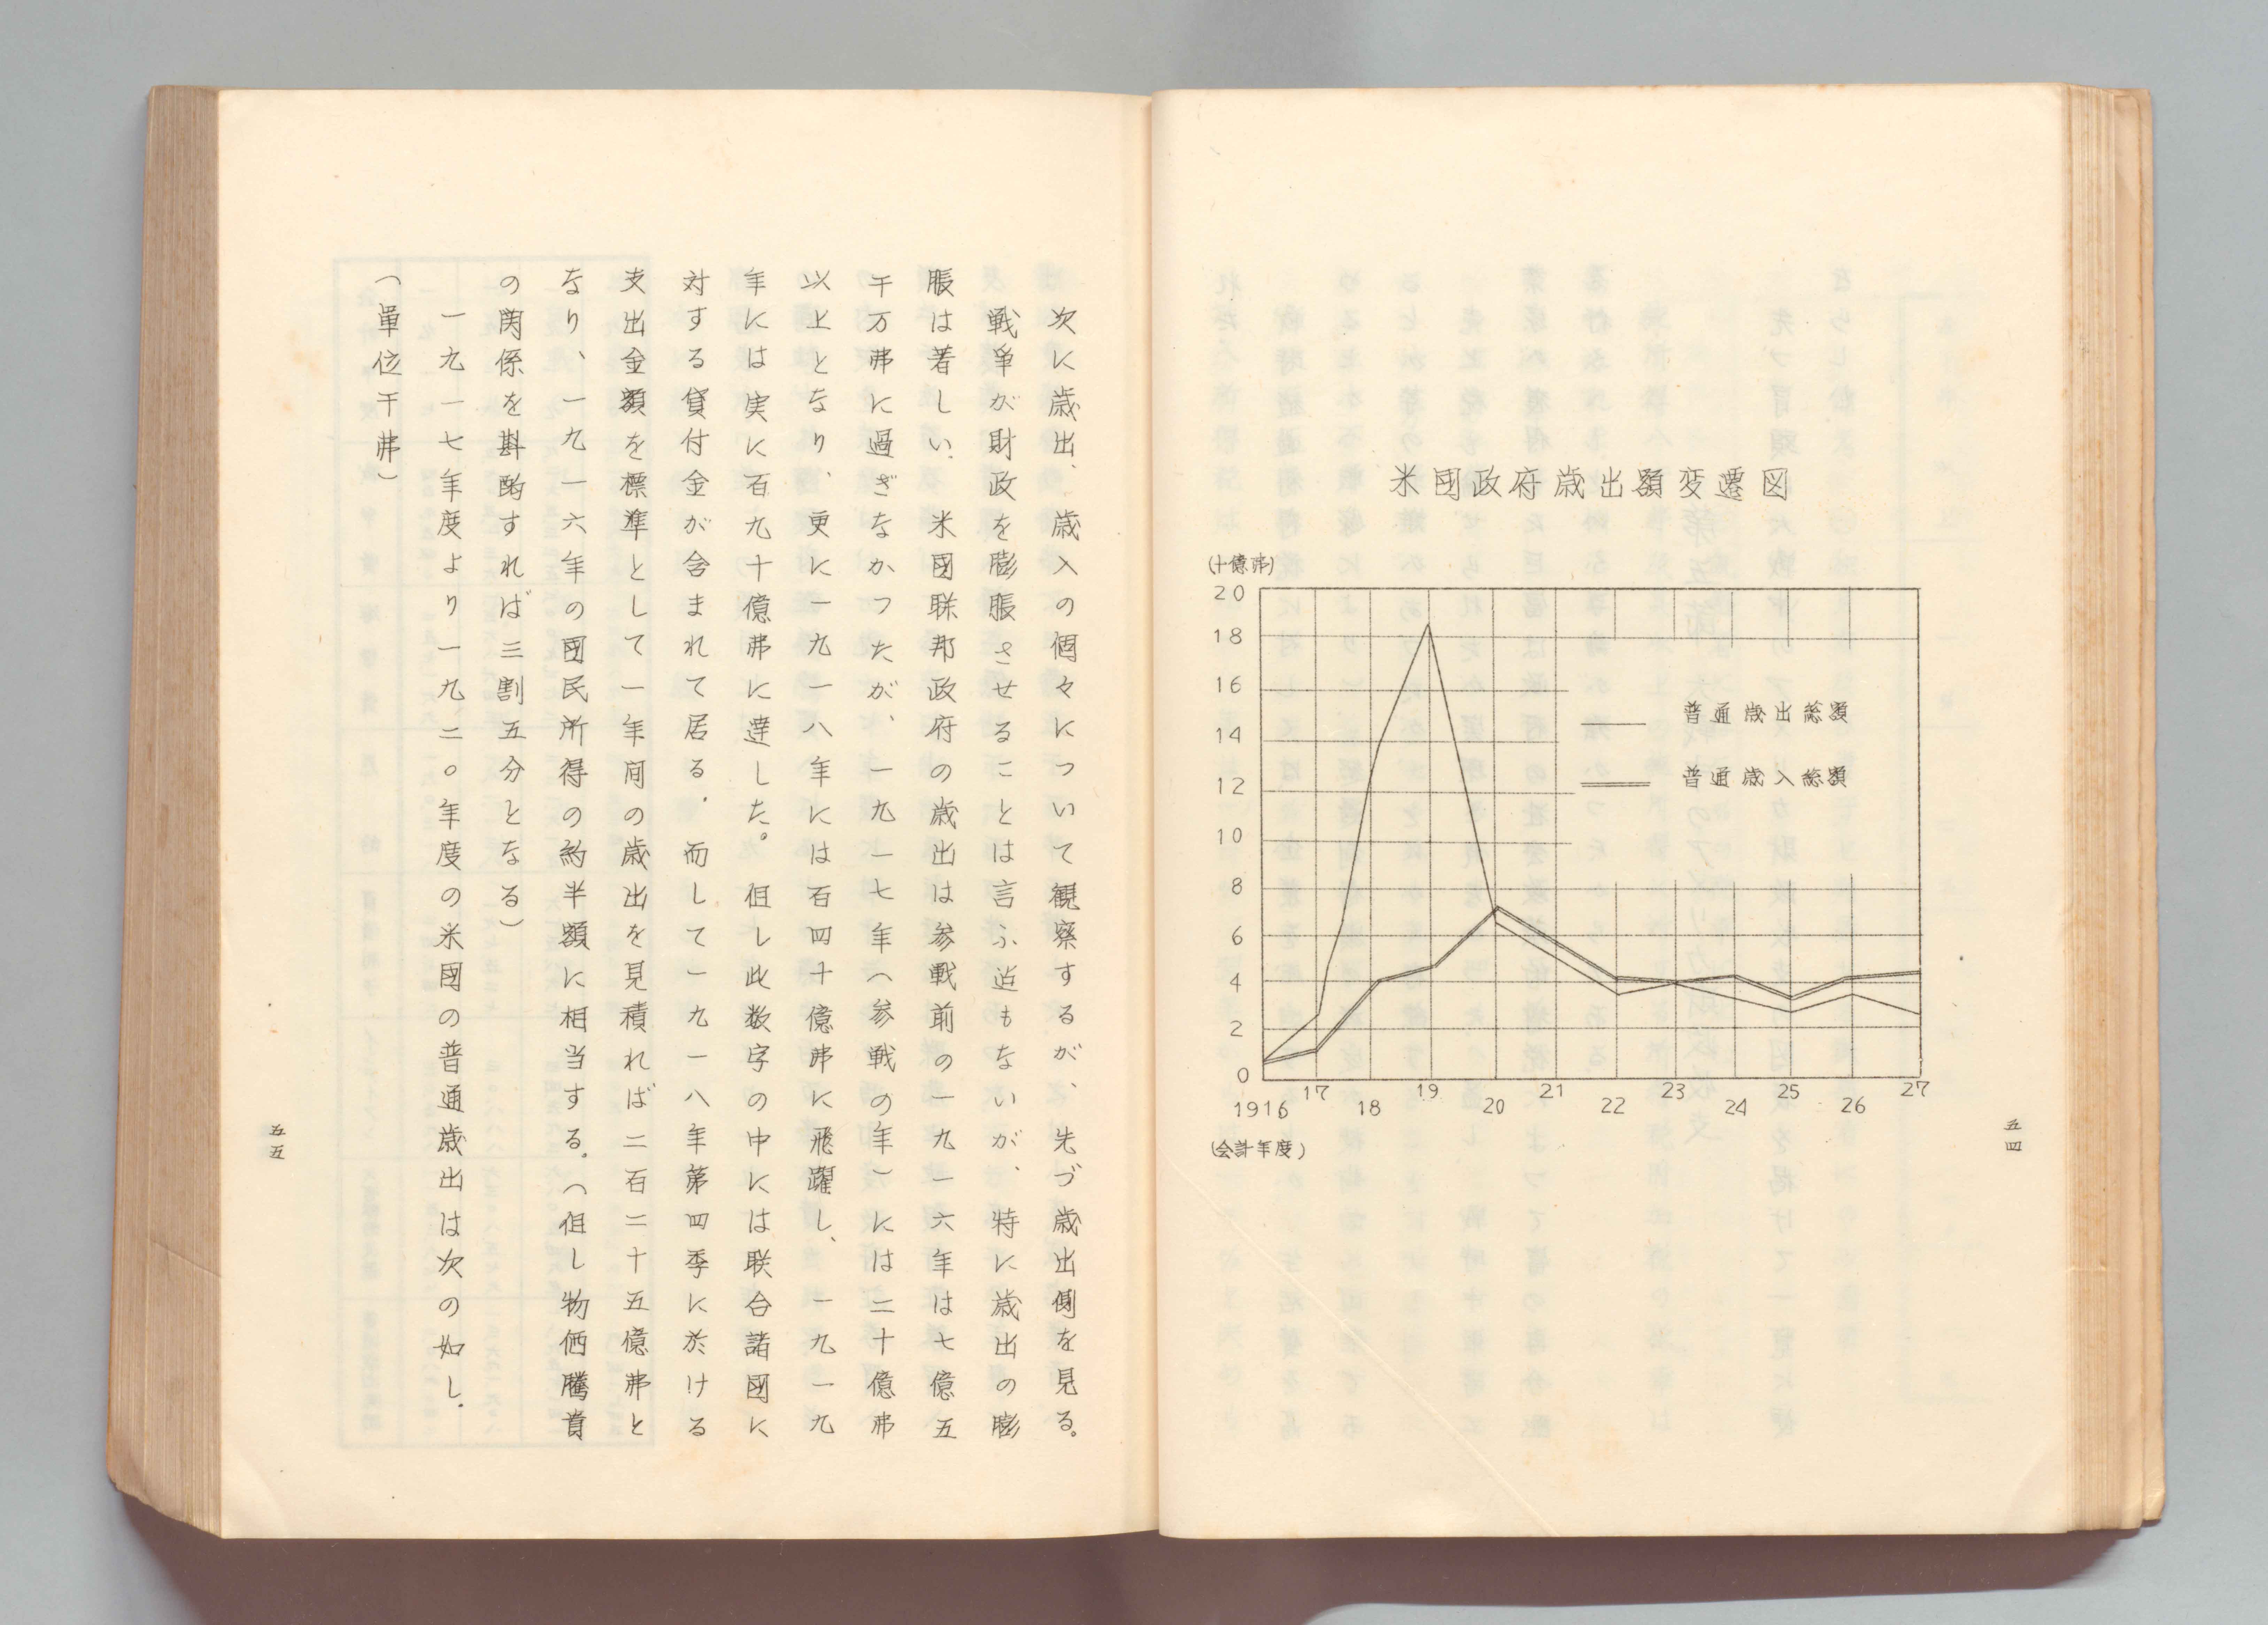 米國政府歳出額変遷図
(十億弗)
20
18
16
14
12
10
8
6
4
2
0
普通歳出総額
普通歳入総額
1916
17
18
19
20
21
22
23
24
25
26
27
(会計年度)
五四
次に歳出、歳入の個々について観察するが、先づ歳出側を見る。
戦争が財政を膨脹させることは言ふ迄もないが、特に歳出の膨
脹は著しい、米國聯邦政府の歳出は参戦前の一九一六年は七億五
千万弗に過ぎなかつたが、一九一七年(参戦の年)には二十億弗
以上となり、更に一九一八年には百四十億弗に飛躍し、一九一九
年には実に百九十億弗に達した。但し此数字の中には联合諸國に
対する貸付金が含まれて居る．而して一九一八年第四季に於ける
支出金額を標準として一年间の歳出を見積れば二百二十五億弗と
なり、一九一六年の國民所得の約半額に相当する．(但し物価騰貴
の関係を斟酌すれば三割五分となる)
一九一七年度より一九二〇年度の米國の普通歳出は次の如し．
(單位千弗)
五五